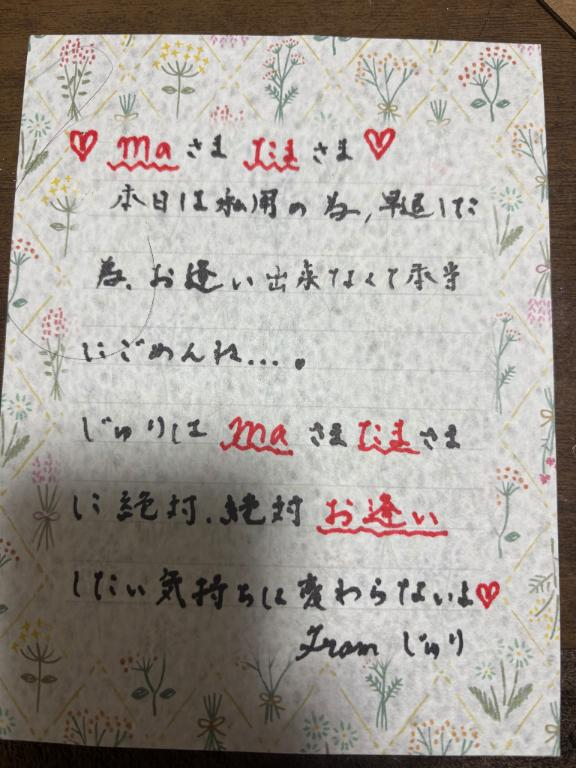 ♡ maさま たえさま ♡
本日は私用の為、早退した
為、お逢い出来なくて本当
にごめんね...。
じゅりは maさまたえさま
に絶対、絶対お逢い
したい気持ちは変わらないよ♡
From じゅり